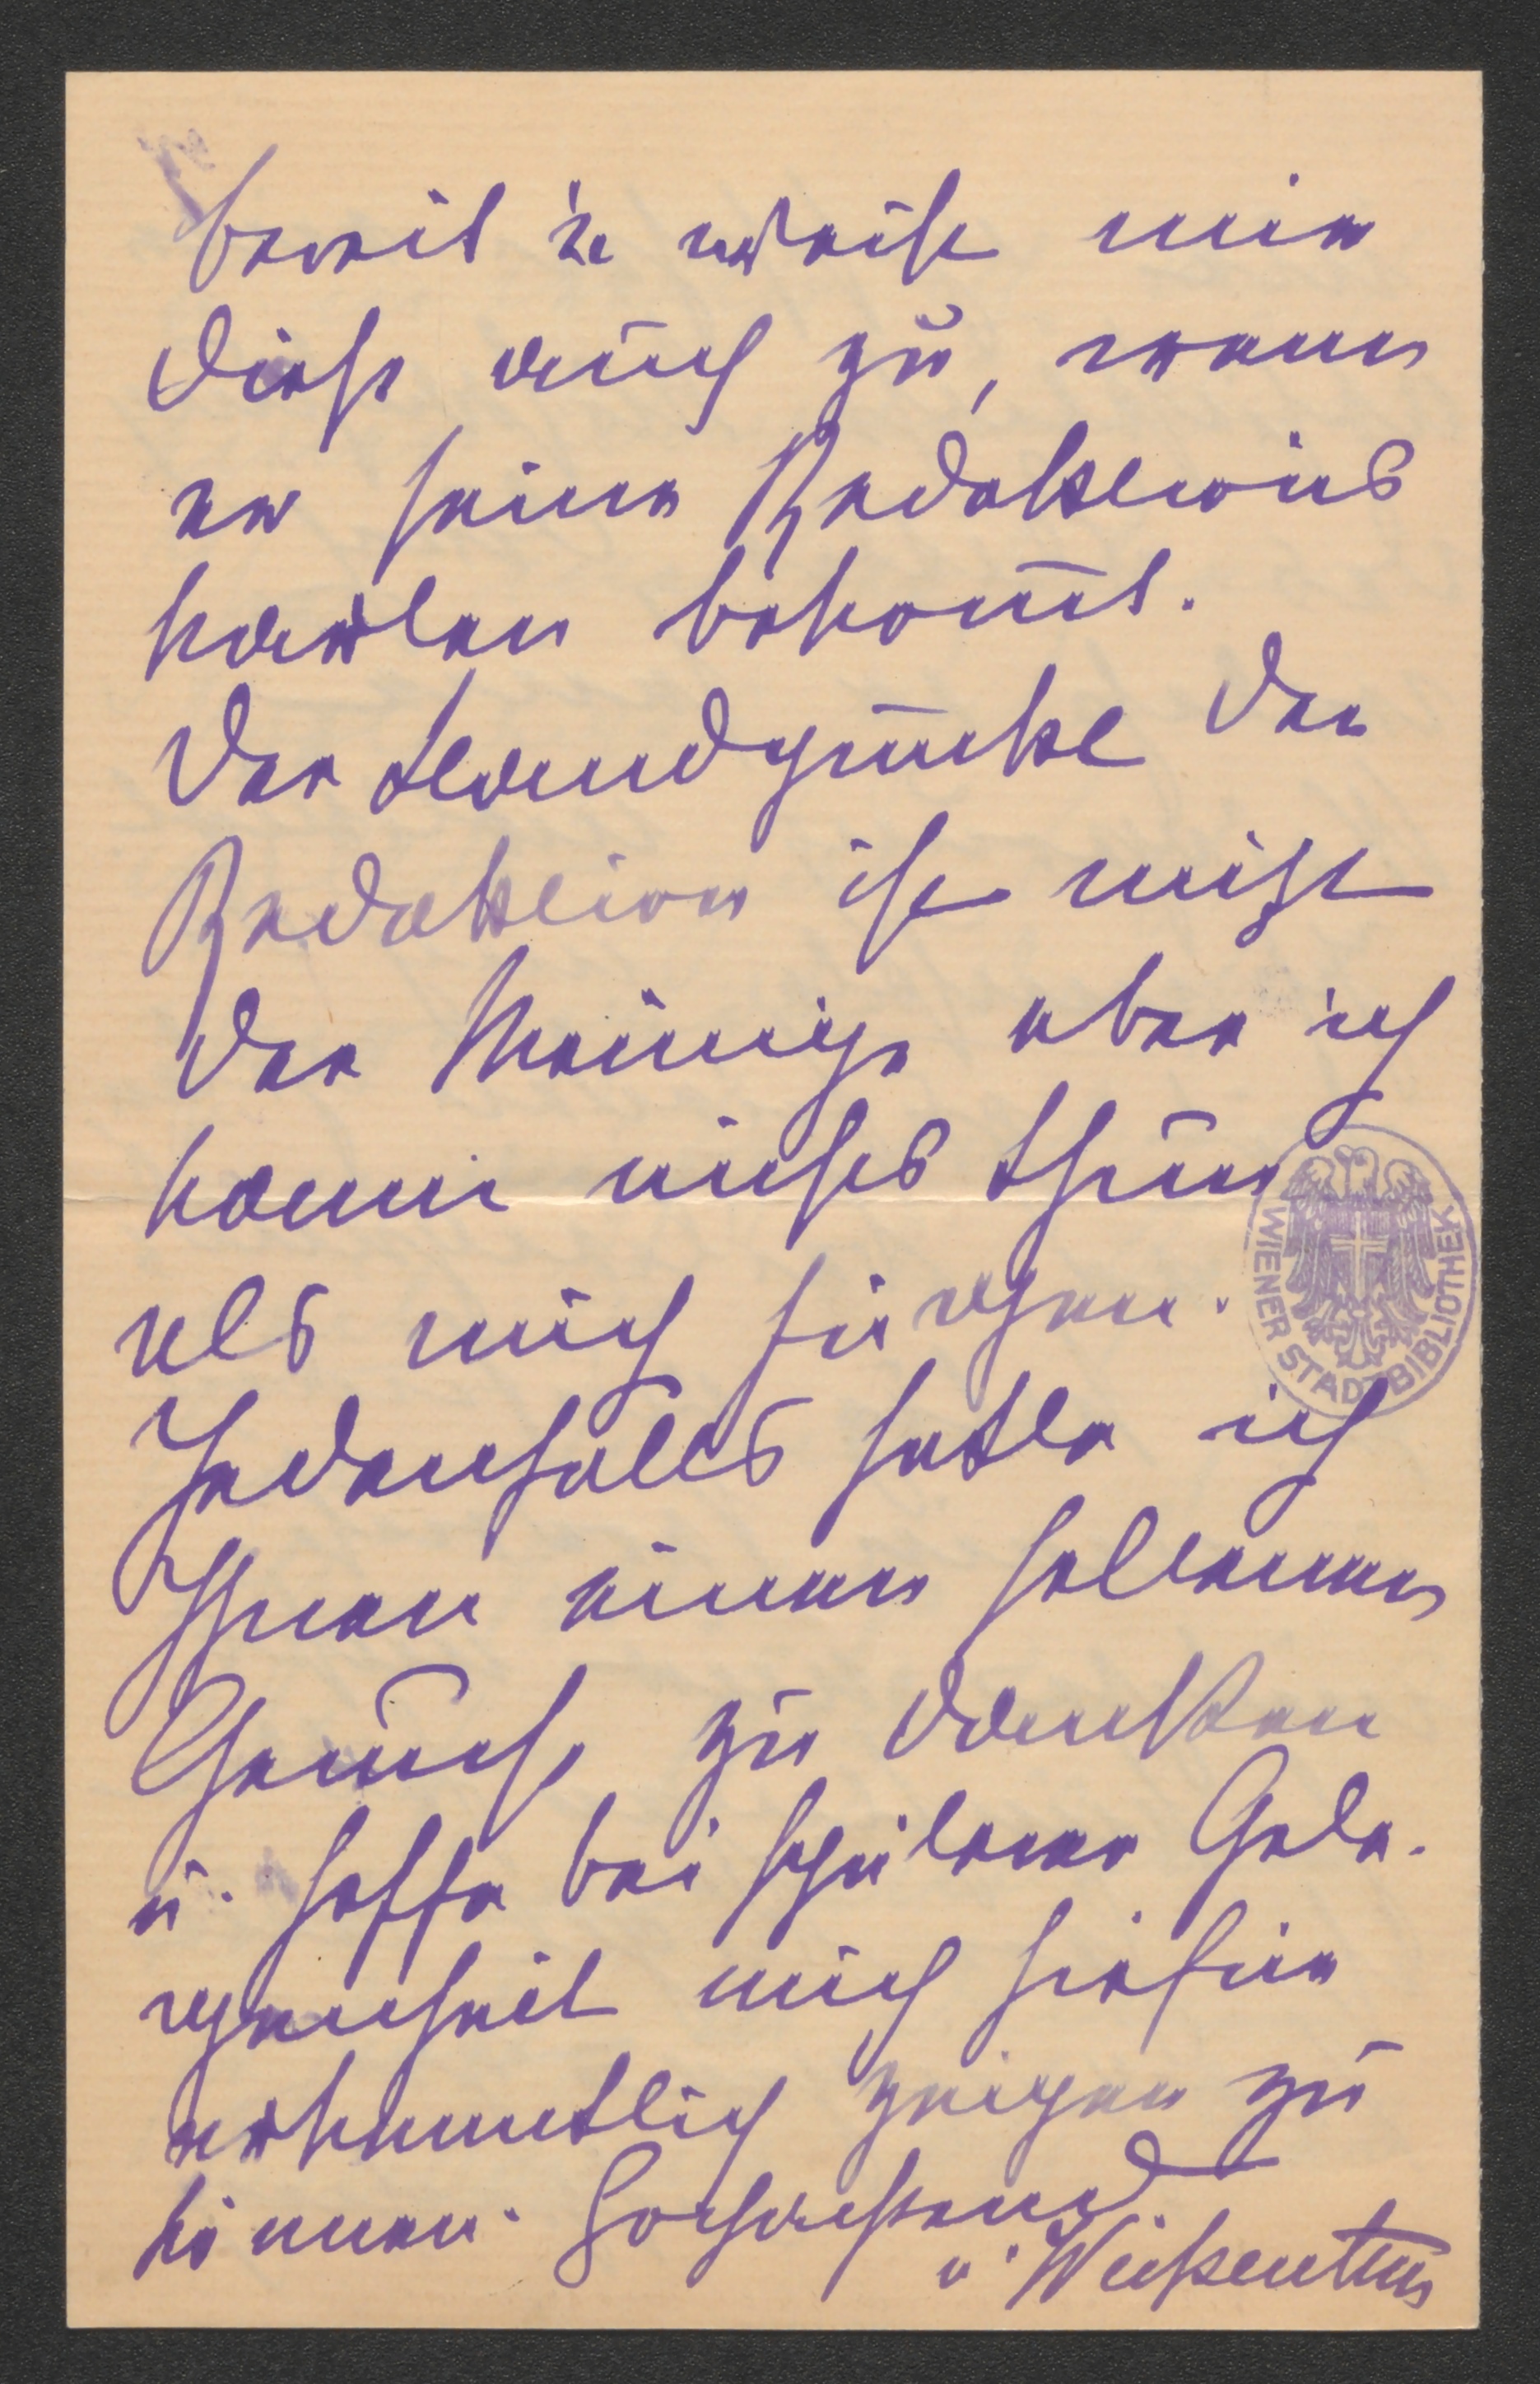 bereit u weist mir
dieß auch zu, wenn
er seine Redaktions
karten bekomt.
Der Standpunkt der
Redaktion ist nicht
der Meinige aber ich
kann nichts thun
als mich fügen.
Jedenfalls hatte ich
Ihnen einen seltenen
Genuß zu danken
u. hoffe bei späterer Gele-
genheit mich hiefür
erkenntlich zeigen zu
können. Hochachtend
WIENER STADTBIBLIOTHEK